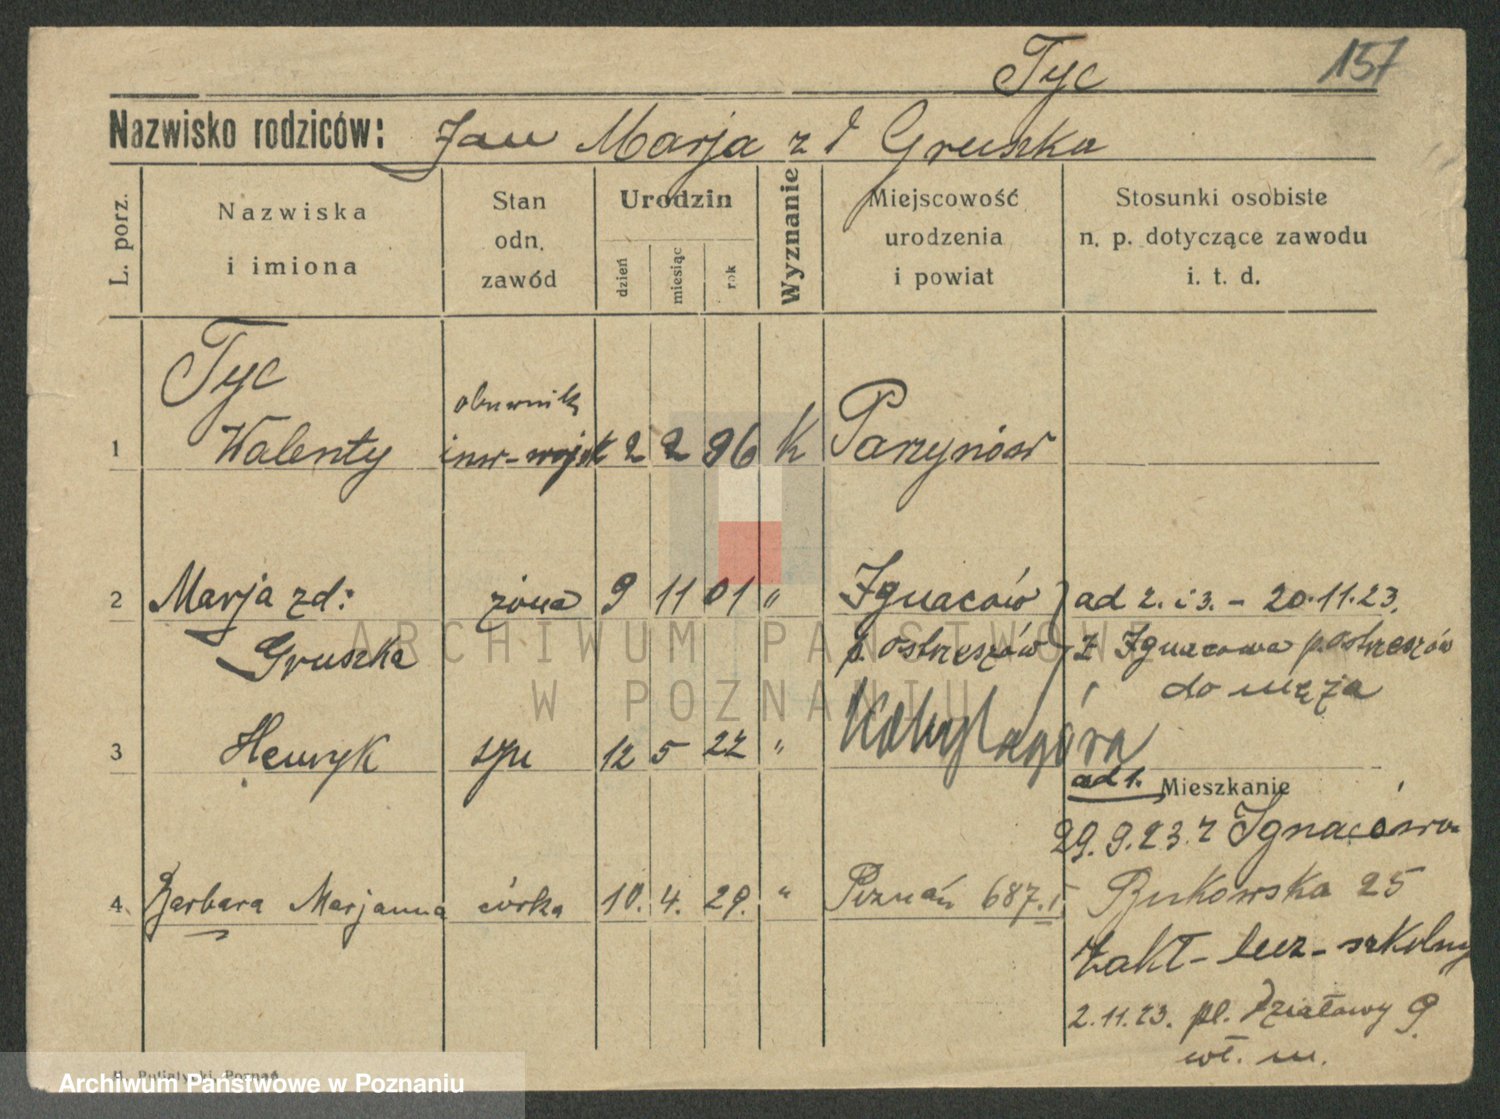 Tyc
157
Nazwisko rodziców: Jan Marja z d Gruszka
L. porz.
Nazwiska
i imiona
Stan
odn.
zawód
Urodzin
dzień
miesiąc
rok
Wyznanie
Miejscowość
urodzenia
i powiat
Stosunki osobiste
n. p. dotyczące zawodu
i. t. d.
Tyc
obuwnik
1 Walenty inw-wojsk 2 2 96 K Parzynów
2 Marja zd: żona 9 11 01 " Ignaców ad 2. i 3. - 20.11.23.
Gruszka p. ostrzeszów z Ignacowa p. ostrzeszów
do męża
3 Henryk syn 12 5 22 " Kobylagóra
ad 1. Mieszkanie
29.9.23. z Ignacówa
4. Barbara Marjanna córka 10. 4. 29. " Poznań 687. I Bukowska 25
Zakł- lecz- szkolny
2.11.23. pl. Działowy 9
wł. m.
ARCHIWUM PAŃSTWOWE
W POZNANIU
Poznań
Archiwum Państwowe w Poznaniu